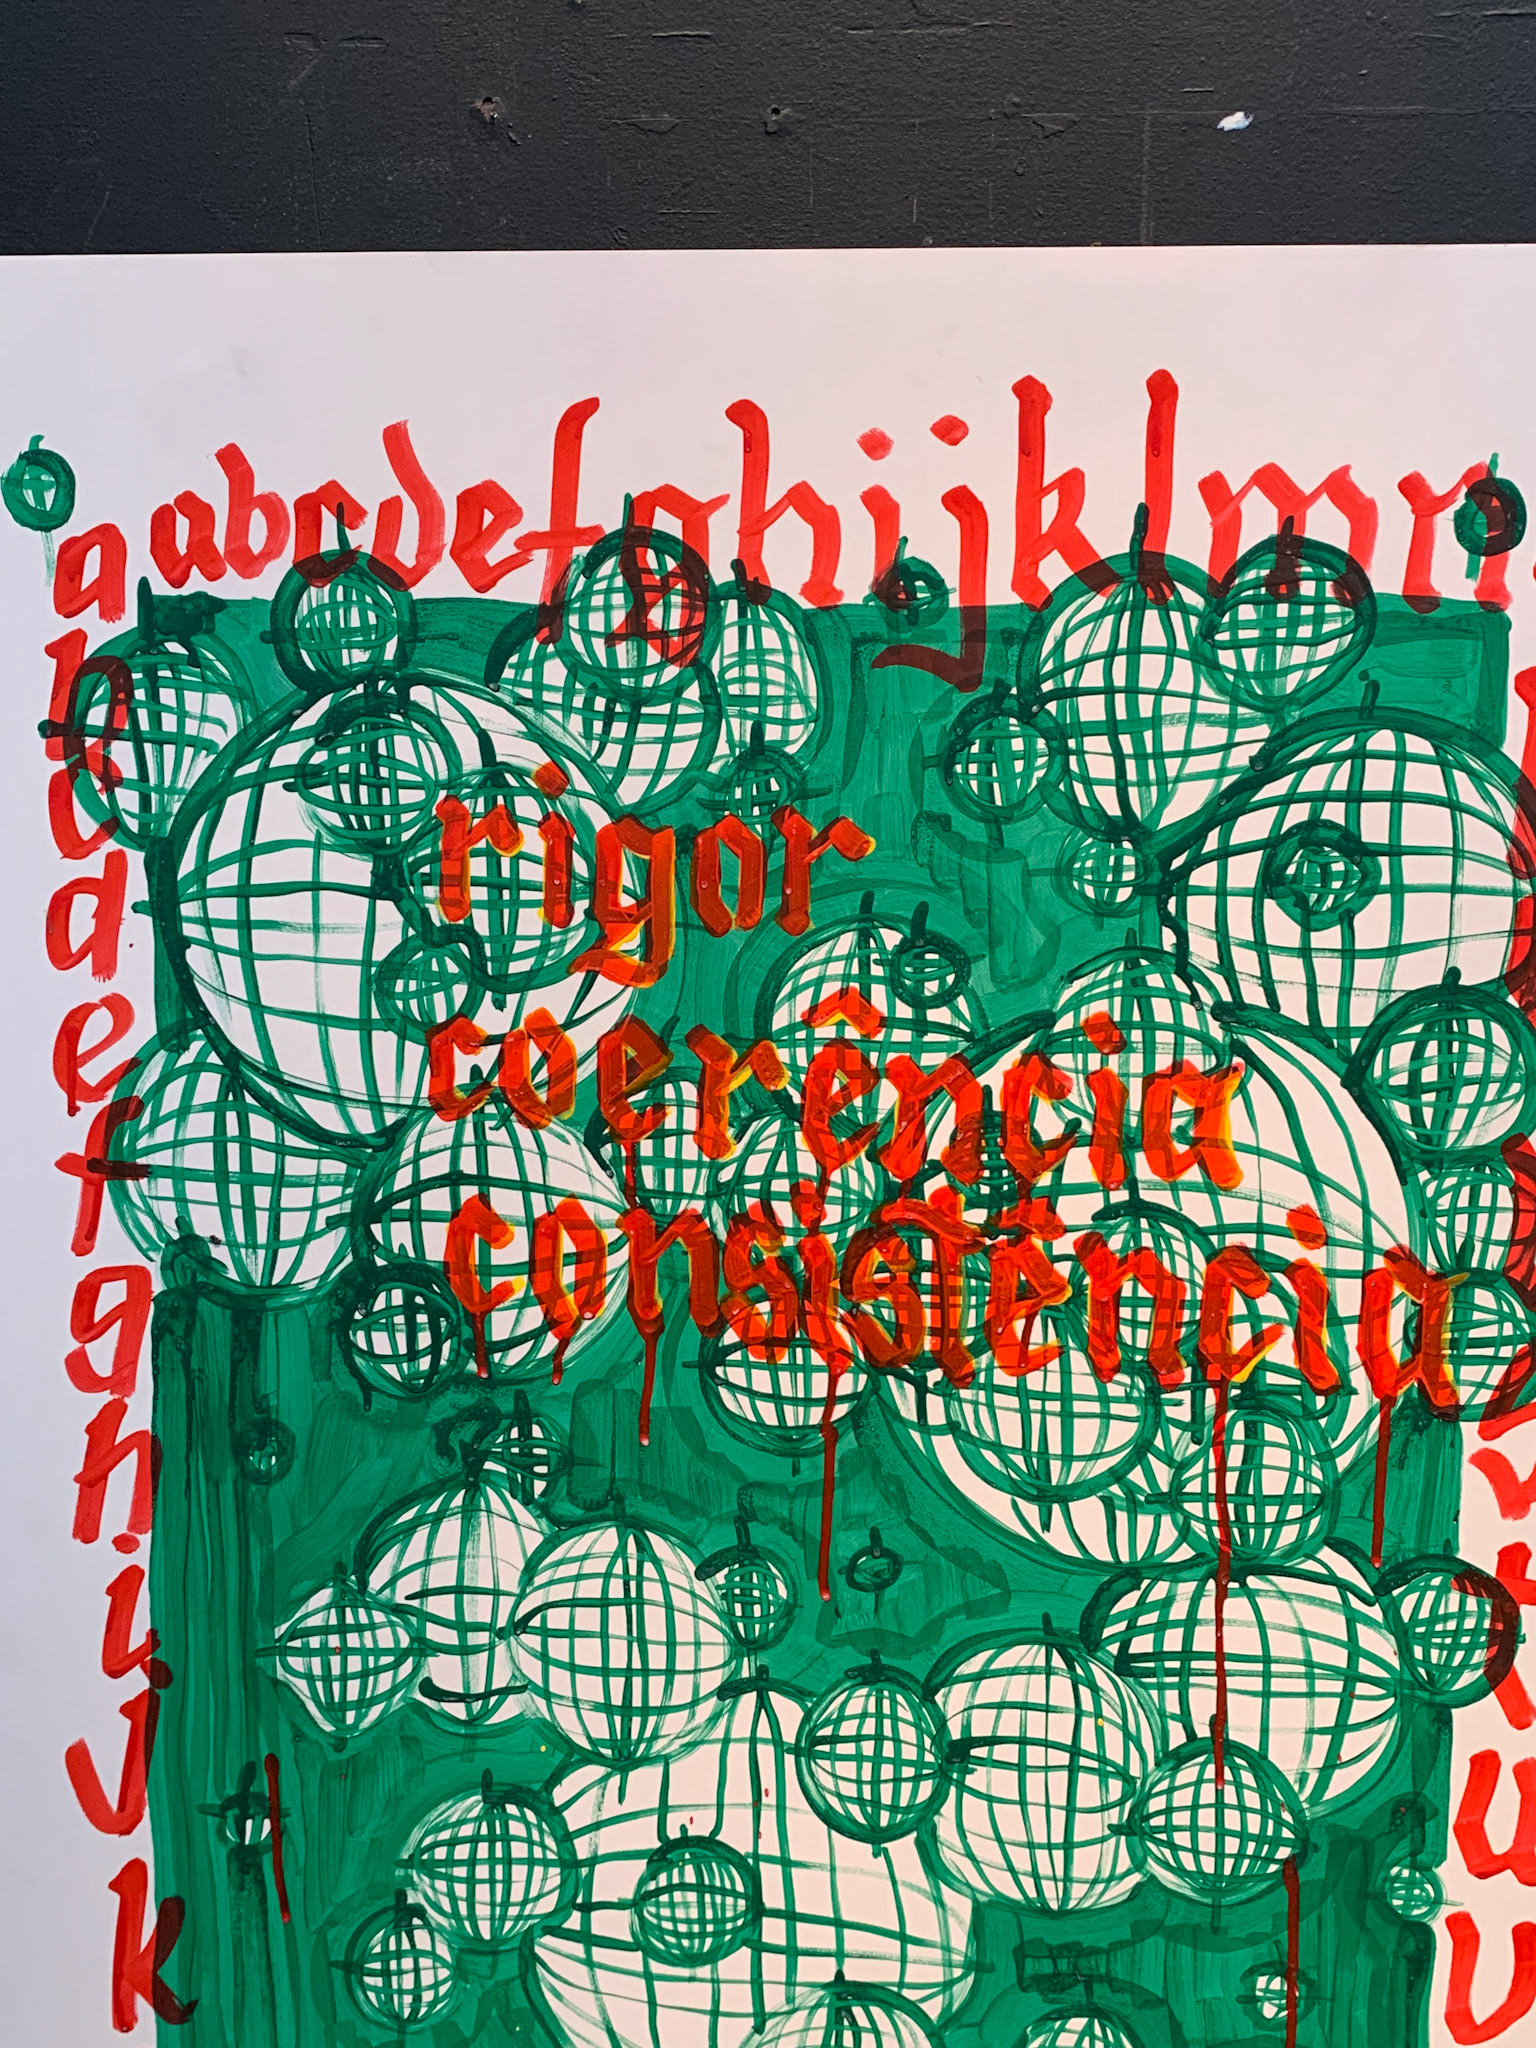 abcdefghijklmn
a
b
c
d
e
f
g
h
i
j
k
rigor
coerência
consistência